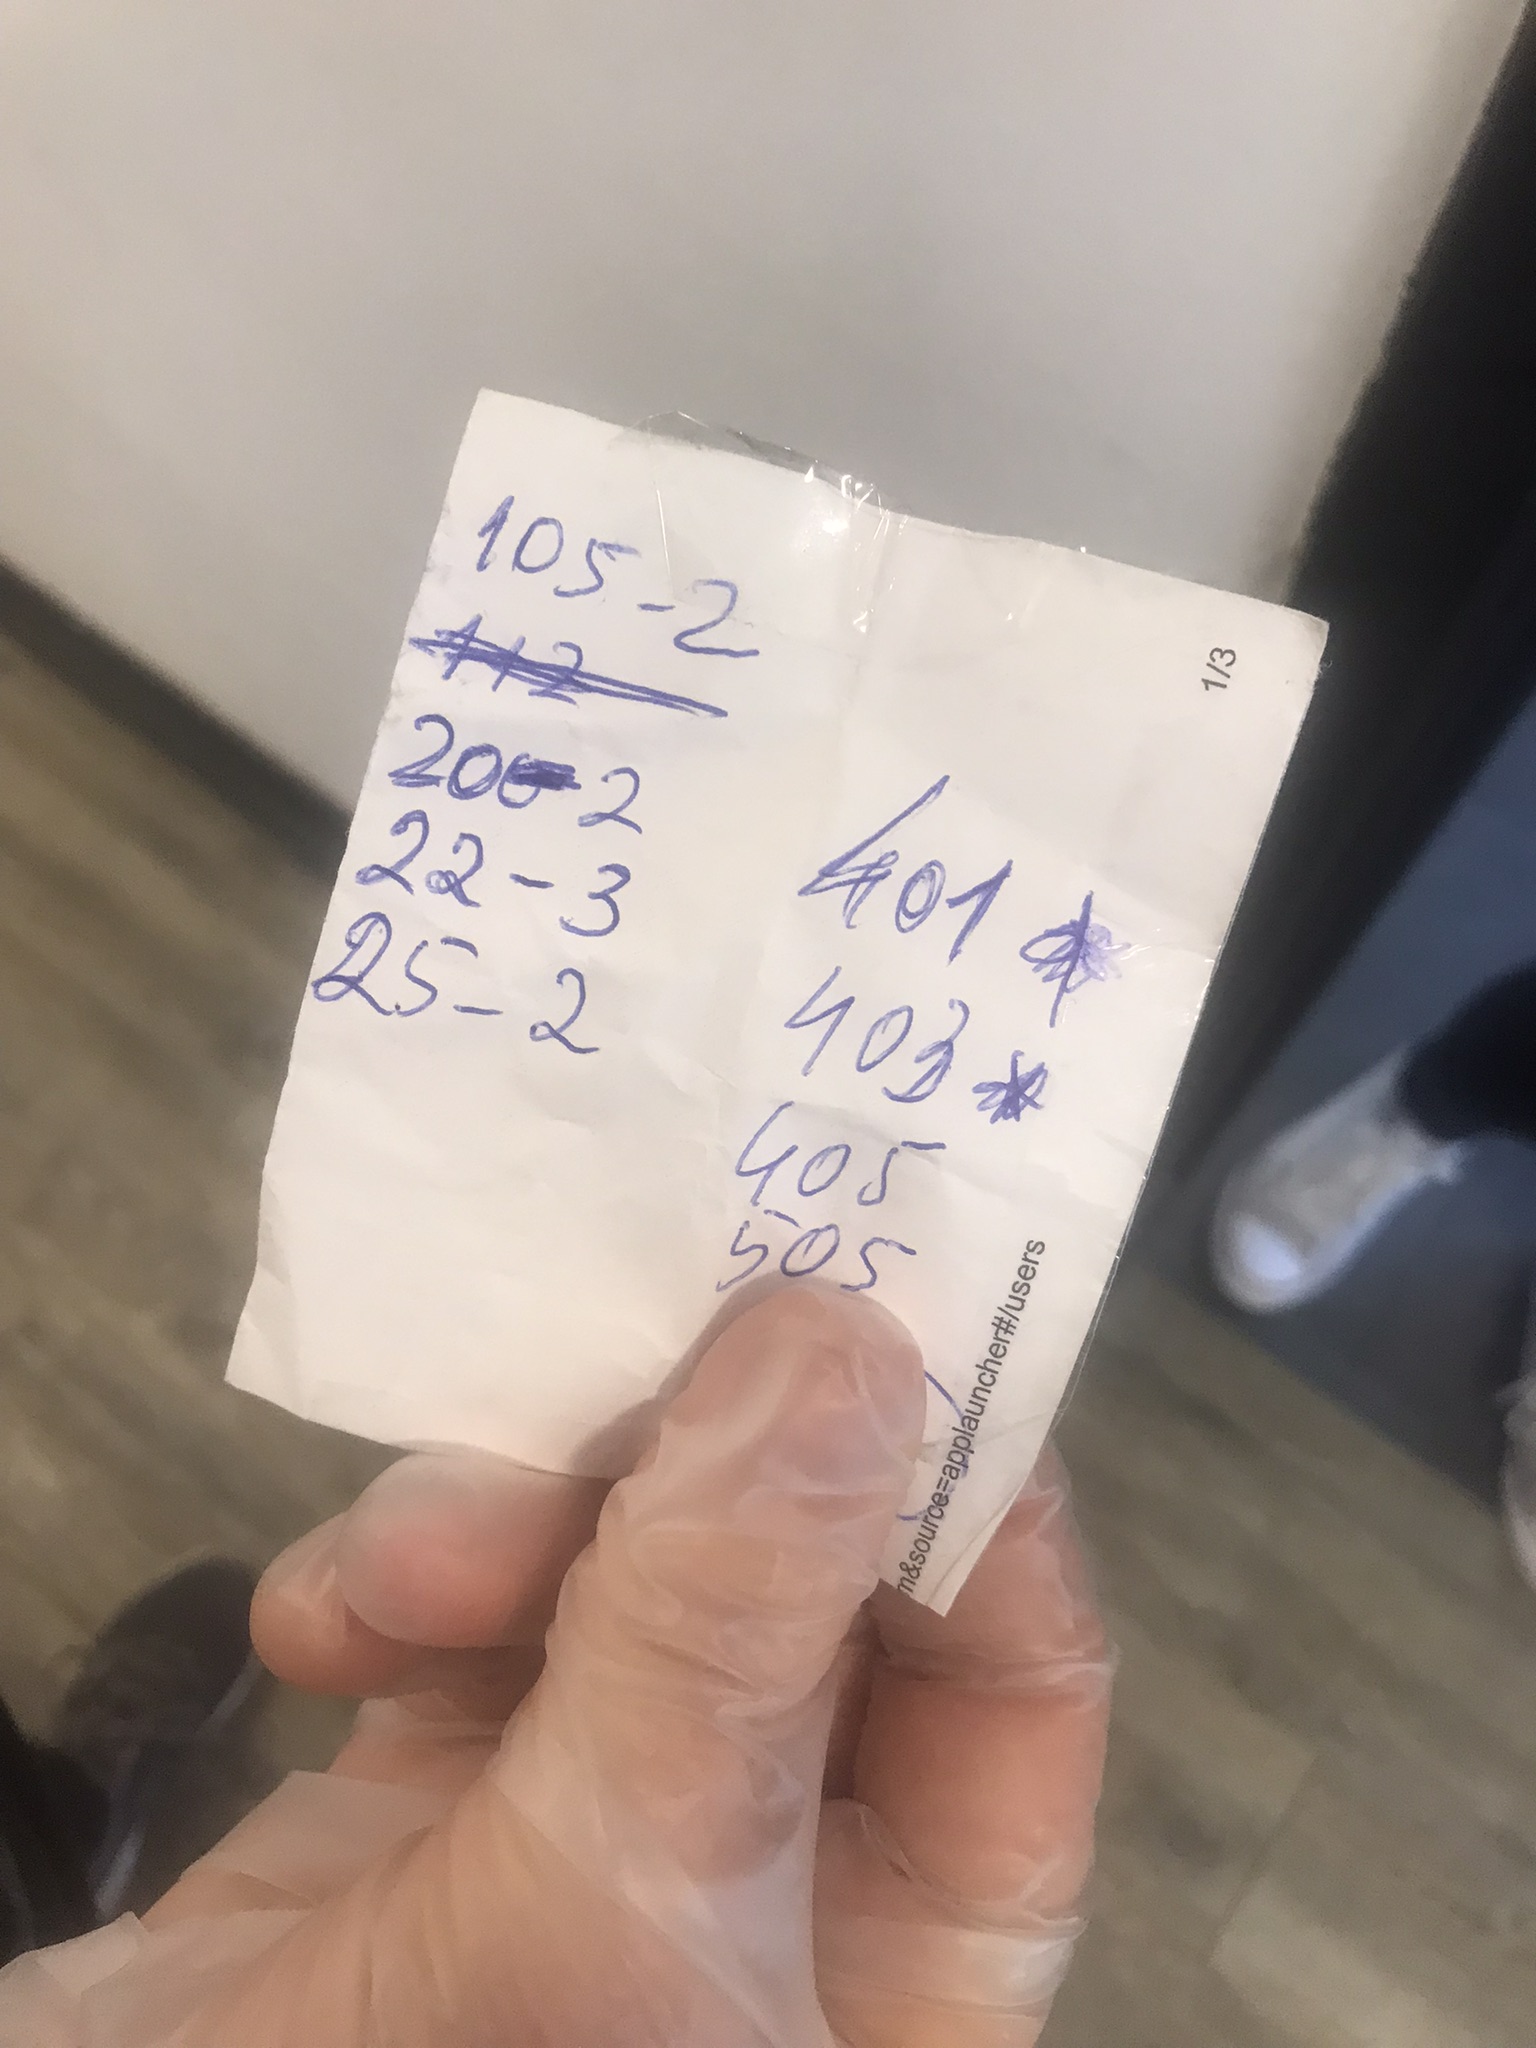 105-2
112
200-2
22-3
25-2
401 *
403 *
405
505
1/3
m&source=applauncher#/users